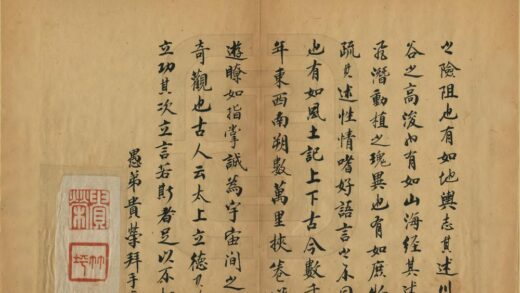 之險阻也有如地輿志其述川
谷之高浚也有如山海經其述
飛潛動植之瑰異也有如庶物
疏其述性情嗜好語言之不同
也有如風土記上下古今數千
年東西南朔數萬里挾卷
遊瞭如指掌誠為宇宙間之
奇觀也古人云太上立德其
立功其次立言若斯者足以不
愚弟貴榮拜手
貴榮
竹坪